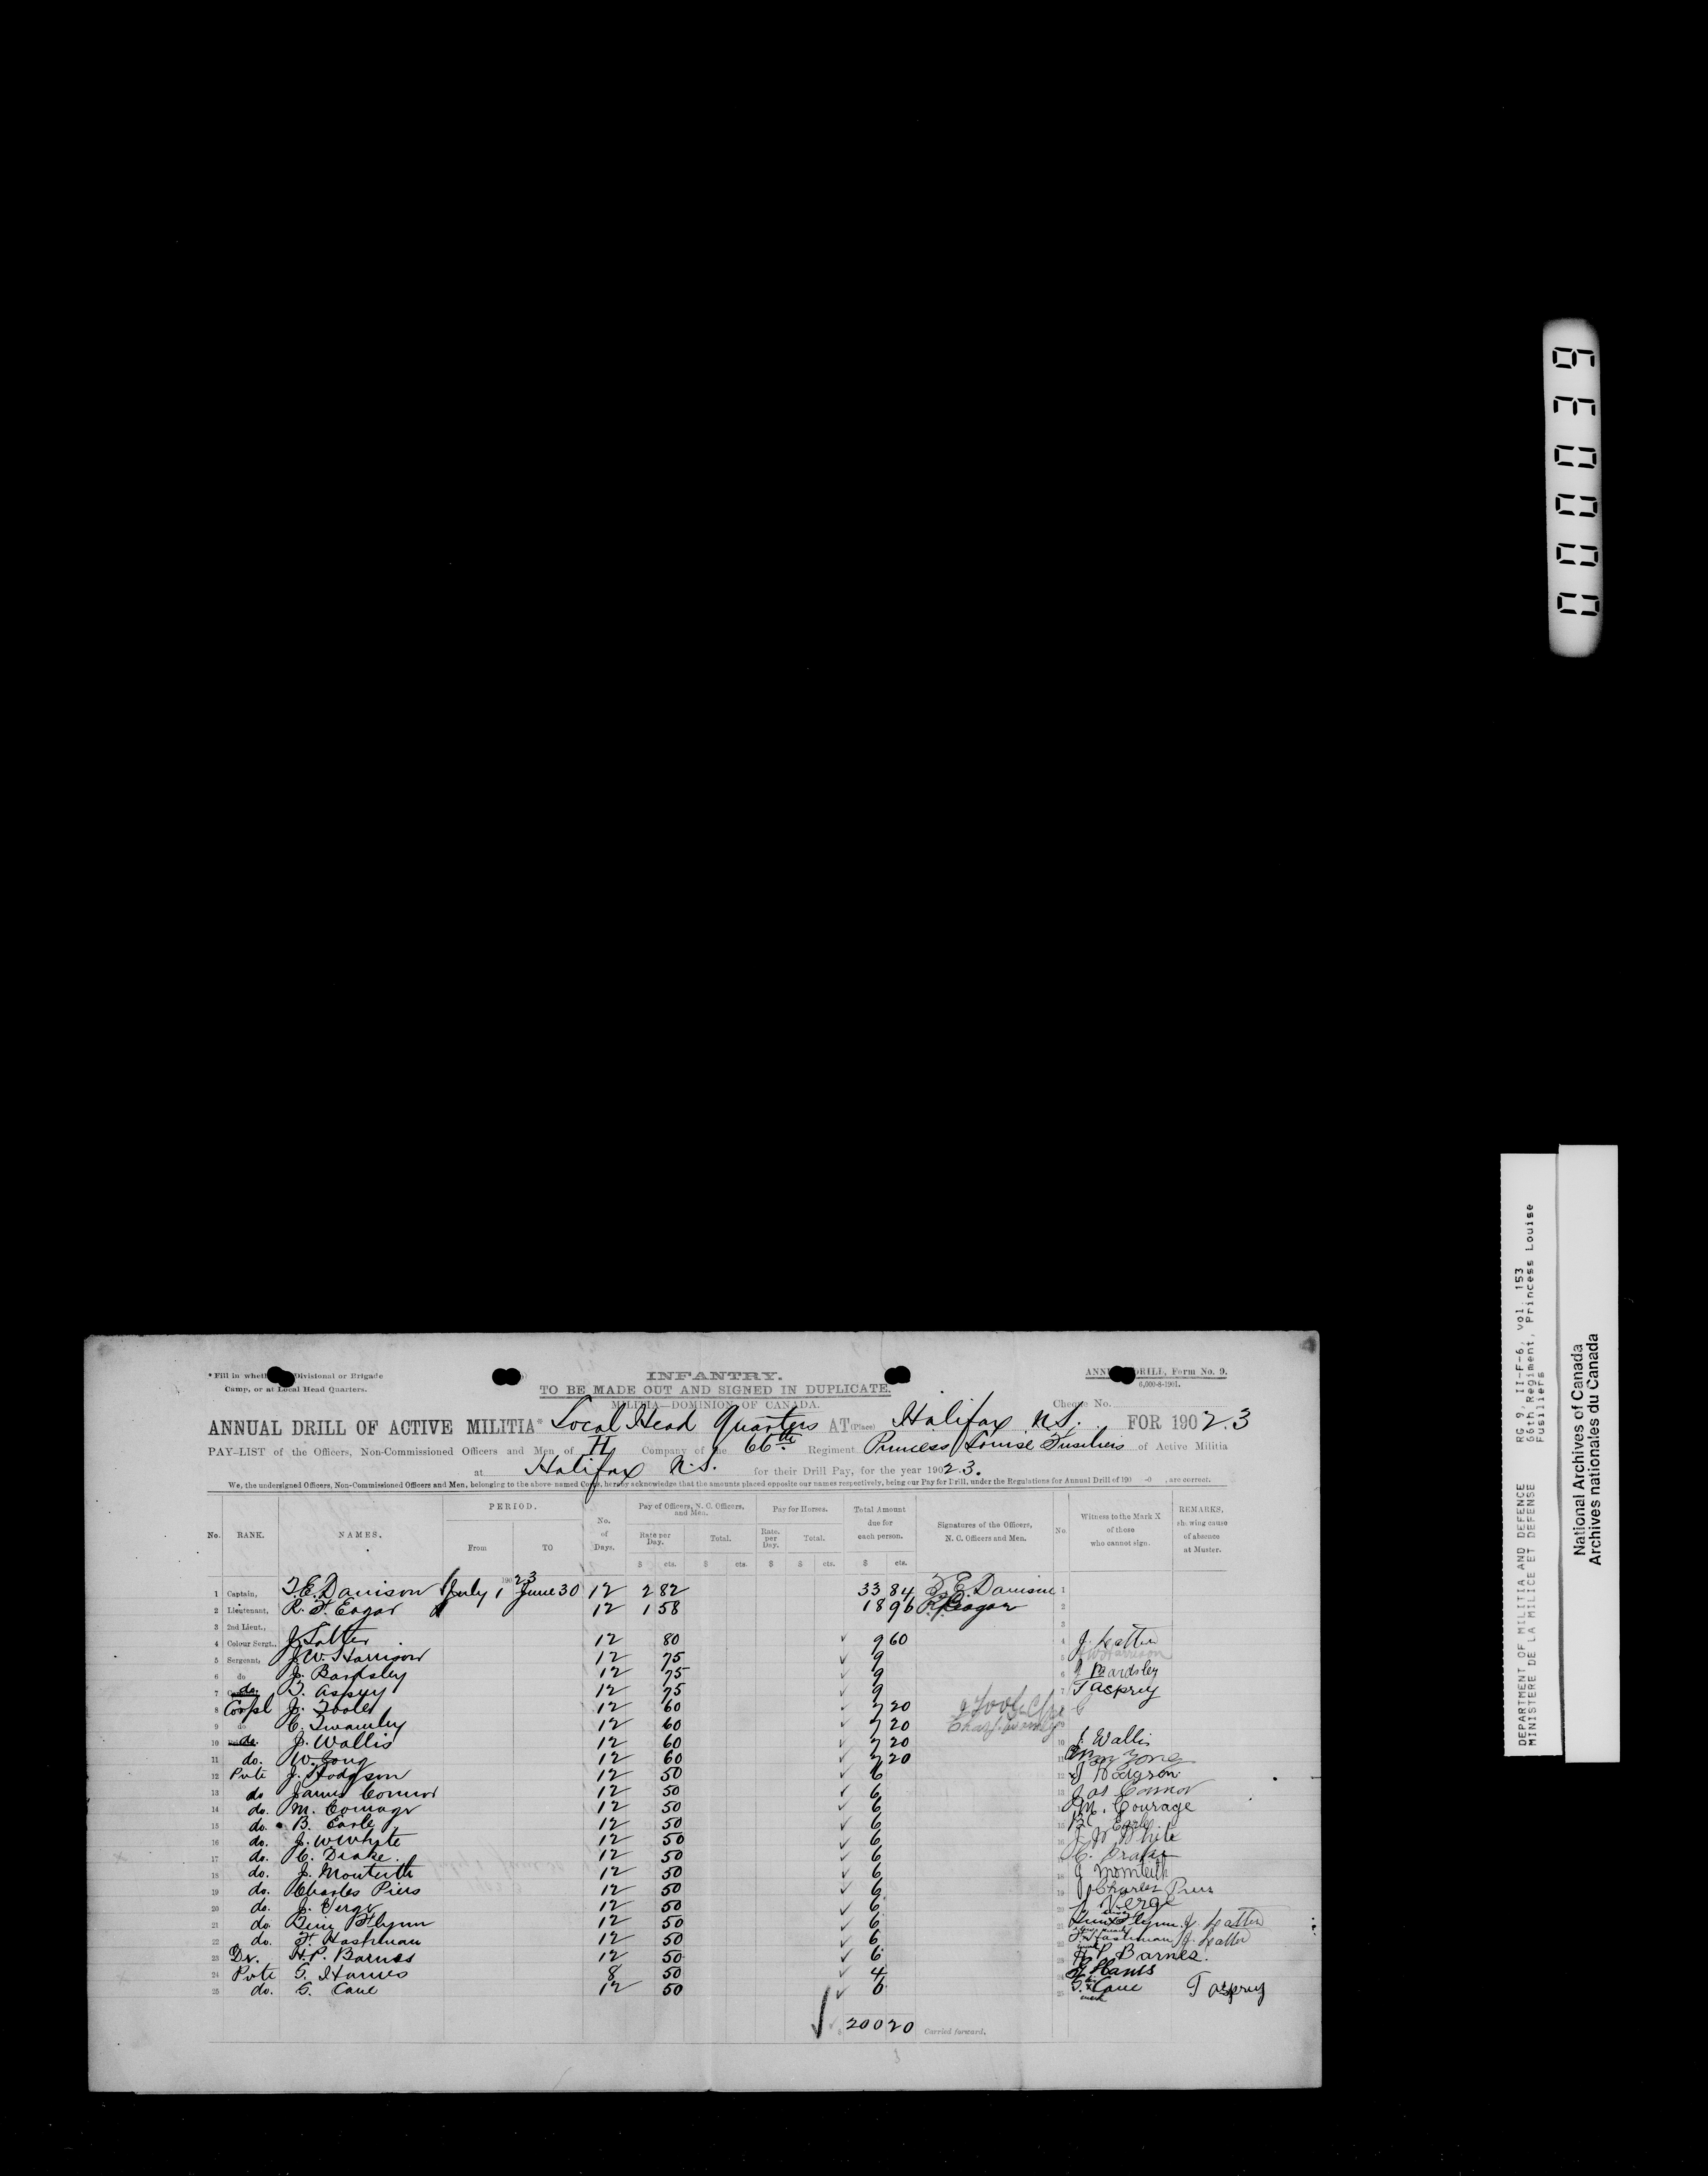 * Fill in wheth Divisional or Brigade
Camp, or at Local Head Quarters.
INFANTRY.
TO BE MADE OUT AND SIGNED IN DUPLICATE.
MILITIA—DOMINION OF CANADA.
ANN DRILL, Form No. 9.
6,000-8-1901.
Cheque No.
ANNUAL DRILL OF ACTIVE MILITIA* Local Head Quarters AT (Place) Halifax N.S. FOR 1902.3
PAY-LIST of the Officers, Non-Commissioned Officers and Men of H Company of the 66th Regiment Princess Louise Fusiliers of Active Militia
at Halifax N.S. for their Drill Pay, for the year 1902.3.
We, the undersigned Officers, Non-Commissioned Officers and Men, belonging to the above named Corps, hereby acknowledge that the amounts placed opposite our names respectively, being our Pay for Drill, under the Regulations for Annual Drill of 190 -0 , are correct.
No. RANK. NAMES. PERIOD. From TO No. of Days. Pay of Officers, N. C. Officers, and Men. Rate per Day. Total. Pay for Horses. Rate per Day. Total. Total Amount due for each person. Signatures of the Officers, N. C. Officers and Men. No. Witness to the Mark X of those who cannot sign. REMARKS, showing cause of absence at Muster.
$ cts. $ cts. $ $ cts. $ cts.
190 23
1 Captain, T.E. Davison July 1 June 30 12 2 82 33 84 T. E. Davison 1
2 Lieutenant, R. F. Eagar 12 1 58 18 96 R F Eagar 2
3 2nd Lieut., 3
4 Colour Sergt., J. Latter 12 80 9 60 4 J. Latter
5 Sergeant, J.W. Harrison 12 75 9 5 JW Harrison
6 do J. Bardsley 12 75 9 6 J Bardsley
7 do. T. Asprey 12 75 9 7 T Asprey
8 Corpl J. Tooley 12 60 7 20
9 do C. Twamley 12 60 7 20
10 do. J. Wallis 12 60 7 20 10 J. Wallis
11 do. W. 12 60 7 20 11
12 Pvte J. Hodgson 12 50 6 12 J Hodgson
13 do James Connor 12 50 6 13 Jas Connor
14 do. M. Courage 12 50 6 14 M. Courage
15 do. B. Earle 12 50 6 15 B Earle
16 do. J. W White 12 50 6 16 J W White
17 do. C. Drake. 12 50 6 17 C. Drake
18 do. J. Monteith 12 50 6 18 J Monteith
19 do. Charles Piers 12 50 6 19 Charles Piers
20 do. J. Verge 12 50 6 20 J Verge
21 do. Benj Flynn 12 50 6 21 Flynn J. Latter
22 do. F. Hashman 12 50 6 22 F. Hashman J. Latter
23 Dr. H.P. Barnes 12 50 6 23 H P Barnes.
24 Pvte G. Hames 8 50 4 24
25 do. G. Cane 12 50 6 25 G. x Cane mark T Asprey
$ 200 20 Carried forward.
000039
DEPARTMENT OF MILITIA AND DEFENCE RG 9, II-F-6, vol. 153
MINISTERE DE LA MILICE ET DEFENSE 66th Regiment, Princess Louise
Fusiliers
National Archives of Canada
Archives nationales du Canada